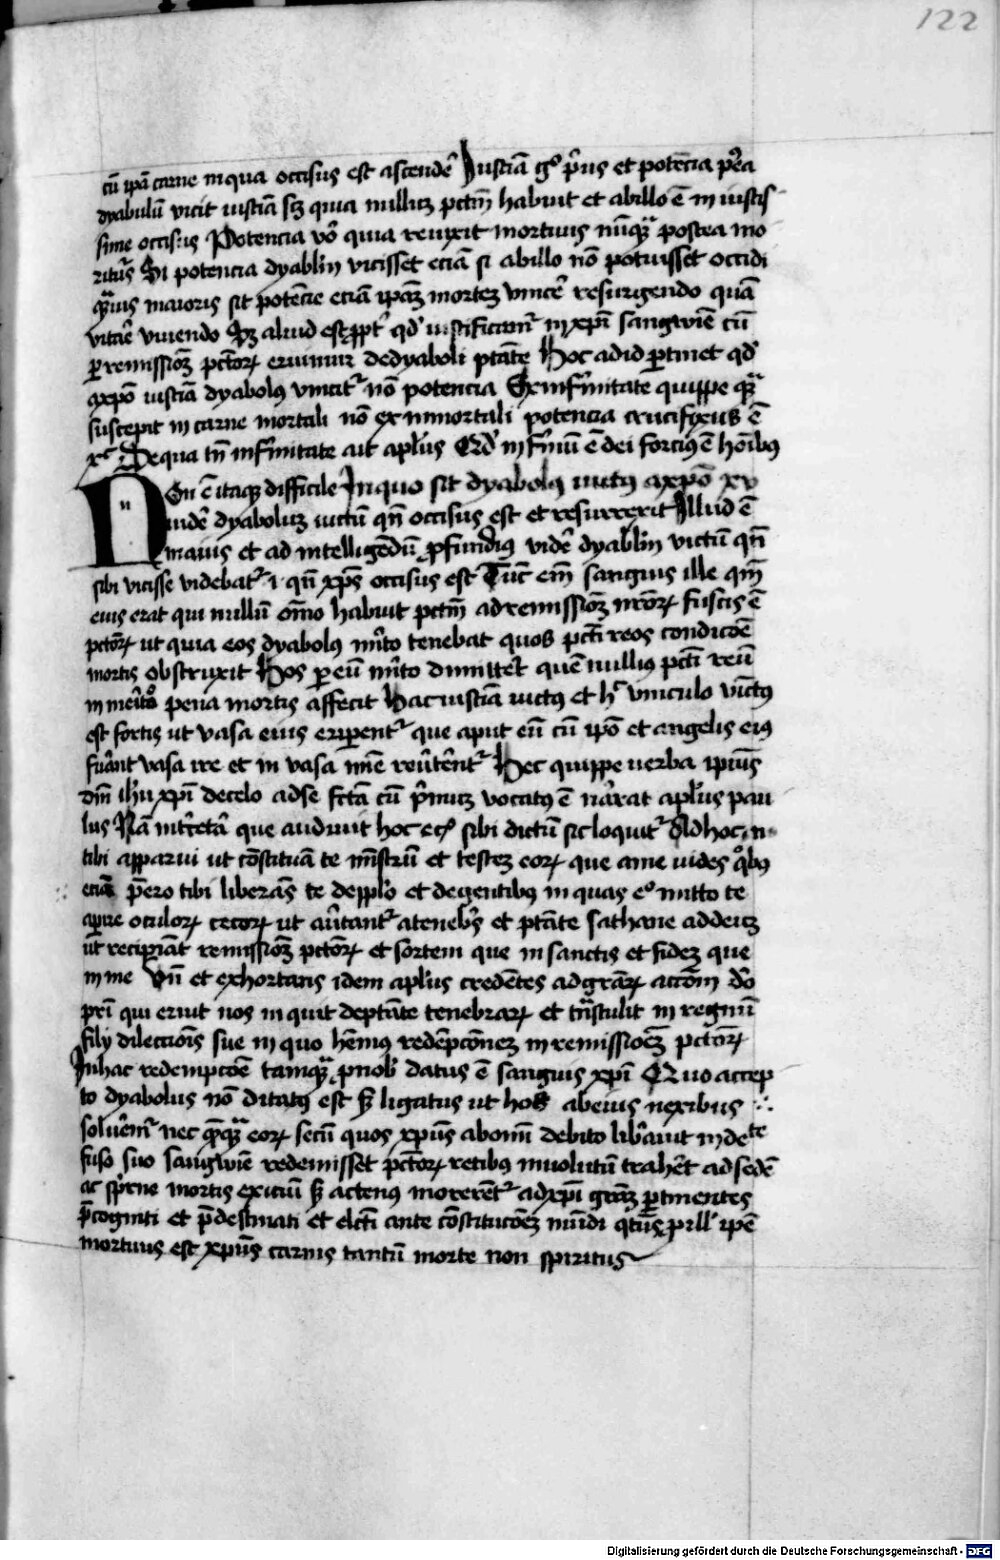 122
cū ipā carne in qua occisus est ascendē Iustiā gͦ p̄us et potēcia p̄ea
dyabulū vicit iustiā sꝫ quia nulluꝫ pctm̄ habuit et ab illo ē in iustis
sime occisus Potencia vō quia reuixit mortuus nūqͣ postea mo
ritus̄ Si potencia dyablm̄ vicisset eciā si ab illo nō potuisset occidi
qͣuis maioris sit potēcie eciā ipaꝫ morteꝫ vincē resurgendo quā
vitaē viuendo Sꝫ aliud est ꝓpt̄ qd̄ iustificam̄ in xp̄i sangwiē cū
ꝑ remissioꝫ pctoꝝ eruimur de dyaboli ptāte hoc ad id ꝑtinet qd̄
a xpō iustiā dyabolus vincit᷑ nō potencia Ex infirmitate quippe qͣ
suscepit in carne mortali nō ex inmortali potencia crucifixus ē
xᶜ De qua tn̄ infirmitate ait aplus Qd̄ infirmū ē dei forcius ē hoībus
Non ē itaqꝫ difficile In quo sit dyabolus uictus a xpō xv
uidē dyaboluꝫ uictū qn̄ occisus est et resurrexit Illud ē
maius et ad intelligēdū ꝓfundius vidē dyablm̄ victū qn̄
sibi vicisse videbat᷑ i qn̄ xps̄ occisus est Tūc em̄ sanguis ille qm̄
eius erat qui nullū om̄o habuit pctm̄ ad remissioꝫ nr̄oꝝ fusus ē
pctoꝝ ut quia eos dyabolus m̄ito tenebat quos pcti reos condicōe
mortis obstruxit hos ꝑ eū m̄ito dimittet quē nullius pcti reū
in mēito pena mortis affecit hac iustiā uictus et hͨ vinculo vīctus
est fortis ut vasa eius eriperent᷑ que aput eū cū ipō et angelis eius
fuānt vasa ire et in vasa mīe reūtēnt᷑ hec quippe uerba ipius̄
dn̄i ih̄u xp̄i de celo ad se fctā cū p̄muꝫ vocatus ē nārat aplus pau
lus Nā int̄cetā que audiuit hoc ecꝫ sibi dictū sic loquit᷑ Ad hoc n
tibi apparui ut cōstituā te mīstrū et testeꝫ eoꝝ que a me uides qͦbus
eciā p̄ero tibi liberās te de pplo et de gentibus in quas eͦ mitto te
apire oculoꝝ cecoꝝ ut aūtant᷑ a tenebris et ptāte sathane ad deuꝫ
ut recipiāt remissioꝫ pctoꝝ et sortem que in sanctis et fideꝫ que
in me Vn̄ et exhortans idem aplus credētes ad grāꝝ accōm dō
pr̄i qui eruit nos in quit de ptāte tenebraꝝ et trāstulit in regnū
filij dilectiois sue in quo hēmus redēpcōneꝫ in remissioēꝫ pctoꝝ
In hac redempcōe tamqͣ p̄ nob̄ datus ē sanguis xp̄i Quo accep
to dyabolus nō ditatus est sꝫ ligatus ut hos ab eius nexibus
soluem̄ nec qͣqͣ eoꝝ secū quos xpūs ab omī debito libāuit in de te
fuso suo sangwiē redemisset pctoꝝ retibus inuolutū trahēt ad sedē
ac sp̄rne mortis exiciū sꝫ actenus morerēt᷑ ad xp̄i grāꝫ ꝑtinentes
p̄cogniti et p̄destinati et elcti ante cōstitucōeꝫ mūdi qtus ꝑ ill̄ ipē
mortuus est xpūs carnis tantū morte non spiritus
Digitalisierung gefördert durch die Deutsche Forschungsgemeinschaft - DFG